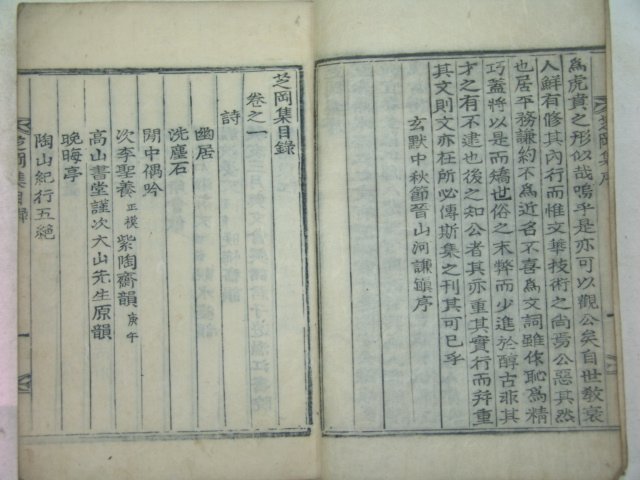 爲虎賁之形似哉嗚乎是亦可以觀公矣自世敎衰
人鮮有修其內行而惟文華技術之尙焉公惡其然
也居平務謙約不爲近名不喜爲文詞雖依恥爲精
巧蓋將以是而矯也俗之末弊而少進於醇古非其
才之有不逮也後之知公者其亦重其實行而幷重
其文則文亦在所必傳斯集之刊其可已乎
玄默中秋節晉山河謙鎭序
芝岡集目錄
卷之一
詩
幽居
洗塵石
閒中偶吟
次李聖養正模紫陶齋韻庚午
高山書堂謹次大山先生原韻
晩晦亭
陶山紀行五絶